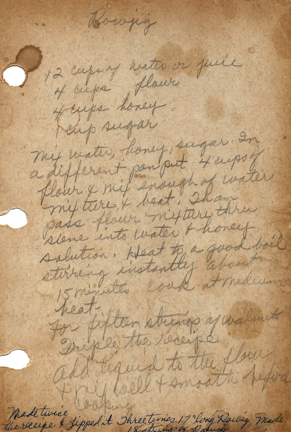 Rowjig
12 cups of water or juice
4 cups flour
4 cups honey.
1 cup sugar
Mix water, honey, sugar In
a different pan put 4 cups of
flour & mix enough of water
mixture & beat. Than
pass flour mixture thru
sieve into water & honey
solution. Heat to a good boil
stirring instantly about
15 minutes Cook at medium
heat-
For fifteen strings of walnuts
Triple the receipe
Add liquid to the flour
& mix well & smooth before
cooking
Made twice
the receipe & dipped it Three times 17" long Rowig Made